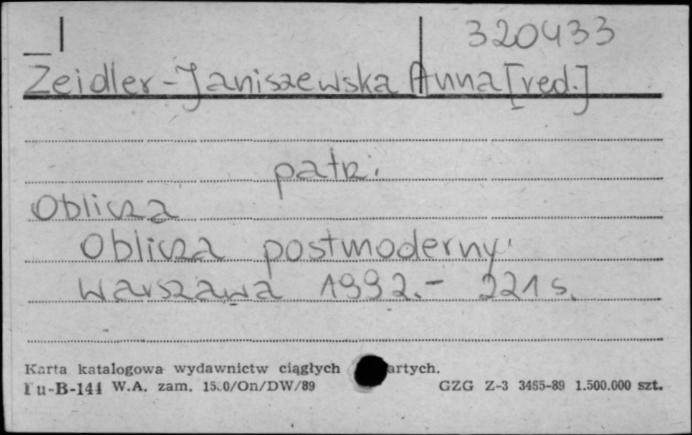 320433
Zeidler-Janiszewska Anna [red.]
patrz:
Oblicza
Oblicza postmoderny.
Warszawa 1992.- 221 s.
Karta katalogowa wydawnictw ciągłych artych.
Pu-B-144 W.A. zam. /On/DW/89 GZG Z-3 3465-89 1.500.000 szt.